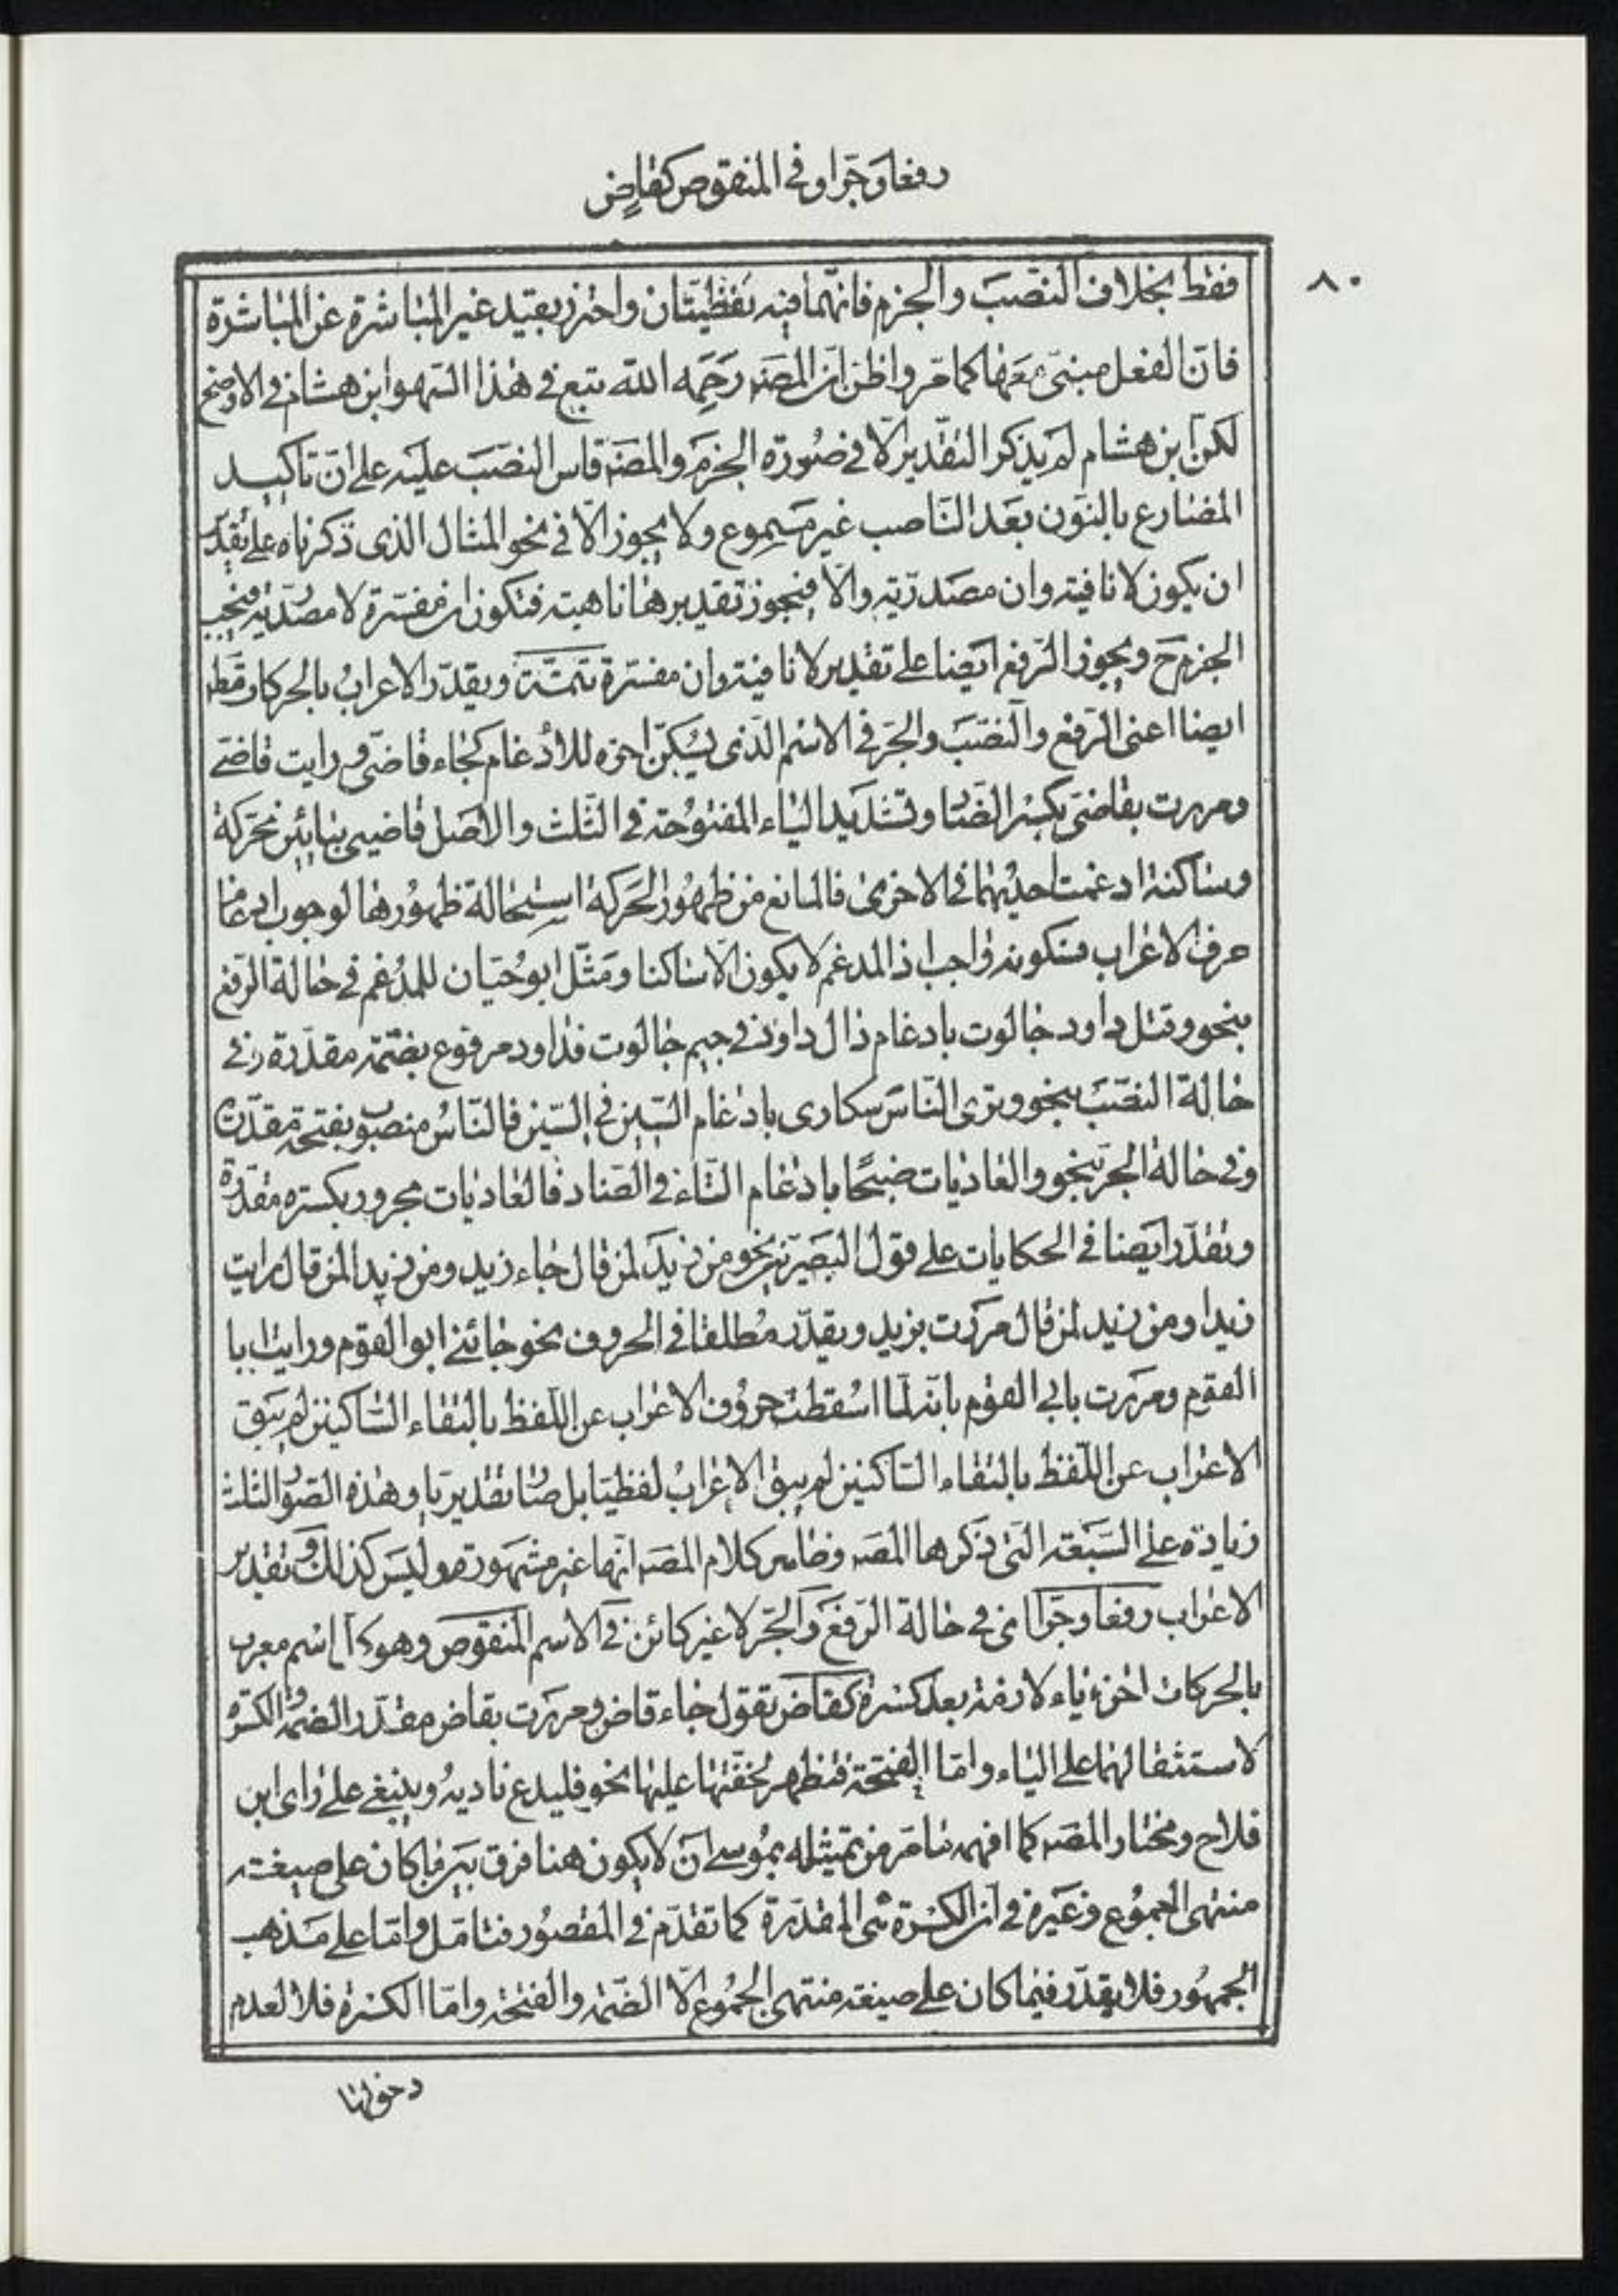 رفعا وجرا وفى المنقوص كقاض
٨٠
فقط بخلاف النصب والجزم فانهما فيه لفظيتان واحترز بقيد غير المباشرة عن المباشرة
فان الفعل مبنى معها كما مر واظن ان المصنه رحمه الله تبع فى هذا السهو ابن هشام فى الاوضح
لكن ابن هشام لم يذكر التقدير الا فى صورة الجزم والمصنه قاس النصب عليه على ان تاكيد
المضارع بالنون بعد الناصب غير مسموع ولا يجوز الا فى نحو المثال الذى ذكرناه على تقدير
ان يكون لا نافية وان مصدرية والا فيجوز تقديرها ناهية فتكون ان مفسرة لا مصدرية فيجب
الجزم ح ويجوز الرفع ايضا على تقدير لا نافية وان مفسرة تتمة ويقدر الاعراب بالحركات قط
ايضا اعنى الرفع والنصب والجر فى الاسم الذى يسكن اخره للادغام كجاء قاضى ورايت قاضى
ومررت بقاضى بكسر الضاد وتشديد الياء المفتوحة فى الثلث والاصل قاضيى بيائين متحركة
وساكنة ادغمت احديهما فى الاخرى فالمانع من ظهور الحركة استحالة ظهورها لوجوب ادغام
حرف الاعراب فسكونه واجب اذ المدغم لا يكون الا ساكنا ومثل ابو حيان للمدغم فى حالة الرفع
بنحو وقتل داود جالوت بادغام دال داود فى جيم جالوت فداود مرفوع بضمة مقدرة وفى
حالة النصب بنحو وترى الناس سكارى بادغام السين فى السين فالناس منصوب بفتحة مقدرة
وفى حالة الجر بنحو والعاديات ضبحا بادغام التاء فى الضاد فالعاديات مجرور بكسرة مقدرة
وتقدر ايضا فى الحكايات على قول البصريين نحو من زيد لمن قال جاء زيد ومن زيدا لمن قال رايت
زيدا ومن زيد لمن قال مررت بزيد ويقدر مطلقا فى الحروف نحو جائنى ابوا القوم ورايت ابا
القوم ومررت بابى القوم بانه لما اسقطت حروف الاعراب عن اللفظ بالتقاء الساكنين لم يبق
الاعراب عن اللفظ بالتقاء الساكنين لم يبق الاعراب لفظيا بل صار تقديريا وهذه الصور الثلث
زيادة على السبعة التى ذكرها المصنه وظاهر كلام المصنه انها غير مشهورة وليس كذلك وتقدير
الاعراب رفعا وجرا اى فى حالة الرفع والجر لا غير كائن فى الاسم المنقوص وهو كل اسم معرب
بالحركات اخره ياء لازمة بعد كسرة كقاض تقول جاء قاض ومررت بقاض مقدر الضمة والكسرة
لاستثقالهما على الياء واما الفتحة فتظهر لخفتها عليها نحو فليدع ناديه وينبغى على راى ابن
فلاح ومختار المصنه كما افهمه ما مر من تمثيله بموسى ان لا يكون هنا فرق بين ما كان على صيغة
منتهى الجموع وغيره فى ان الكسرة هى المقدرة كما تقدم فى المقصور فتامل واما على مذهب
الجمهور فلا يقدر فيما كان على صيغة منتهى الجموع الا الضمة والفتحة واما الكسرة فلا لعدم
دخولها